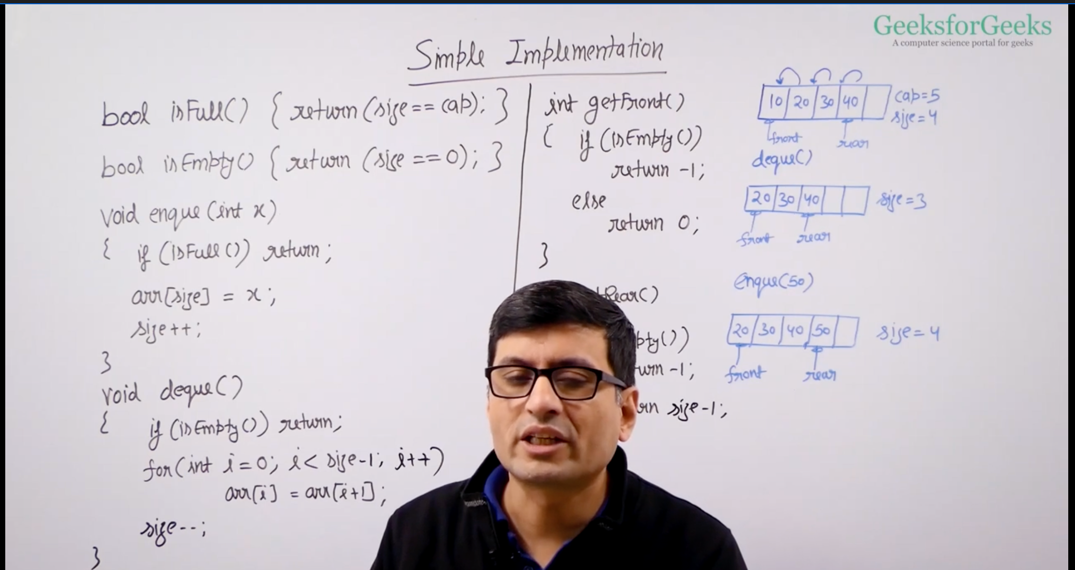 GeeksforGeeks
A computer science portal for geeks
Simple Implementation
bool isFull() { return (size == cap); }
bool isEmpty() { return (size == 0); }
void enque (int x)
{ if (isFull()) return;
arr[size] = x;
size++;
}
void deque()
{ if (isEmpty()) return;
for(int i=0; i< size-1; i++)
arr[i] = arr[i+1];
size--;
}
int getFront()
{ if (isEmpty())
return -1;
else
return 0;
}
Rear()
pty())
urn -1;
urn size-1;
10 20 30 40
cap=5
size=4
front
rear
deque()
20 30 40
size=3
front
rear
enque(50)
20 30 40 50
size=4
front
rear